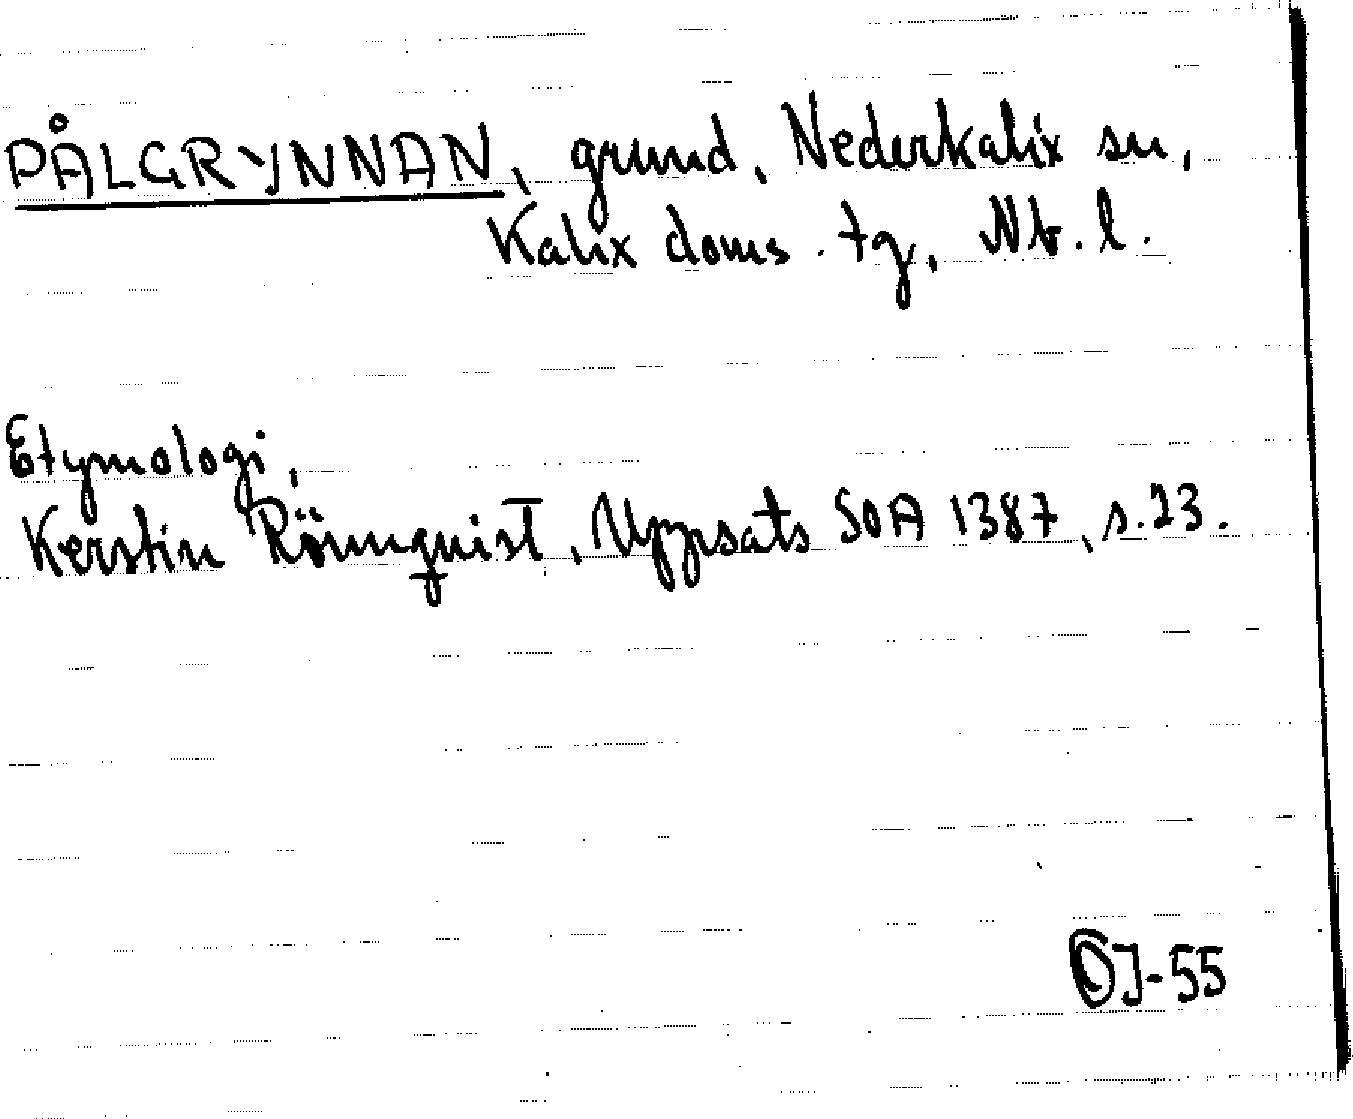 PÅLGRYNNAN, grund, Nederkalix sn,
Kalix doms. tg, Nb. l.
Etymologi,
Kerstin Rönnquist, Uppsats SOA 1387, s. 23.
OJ-55